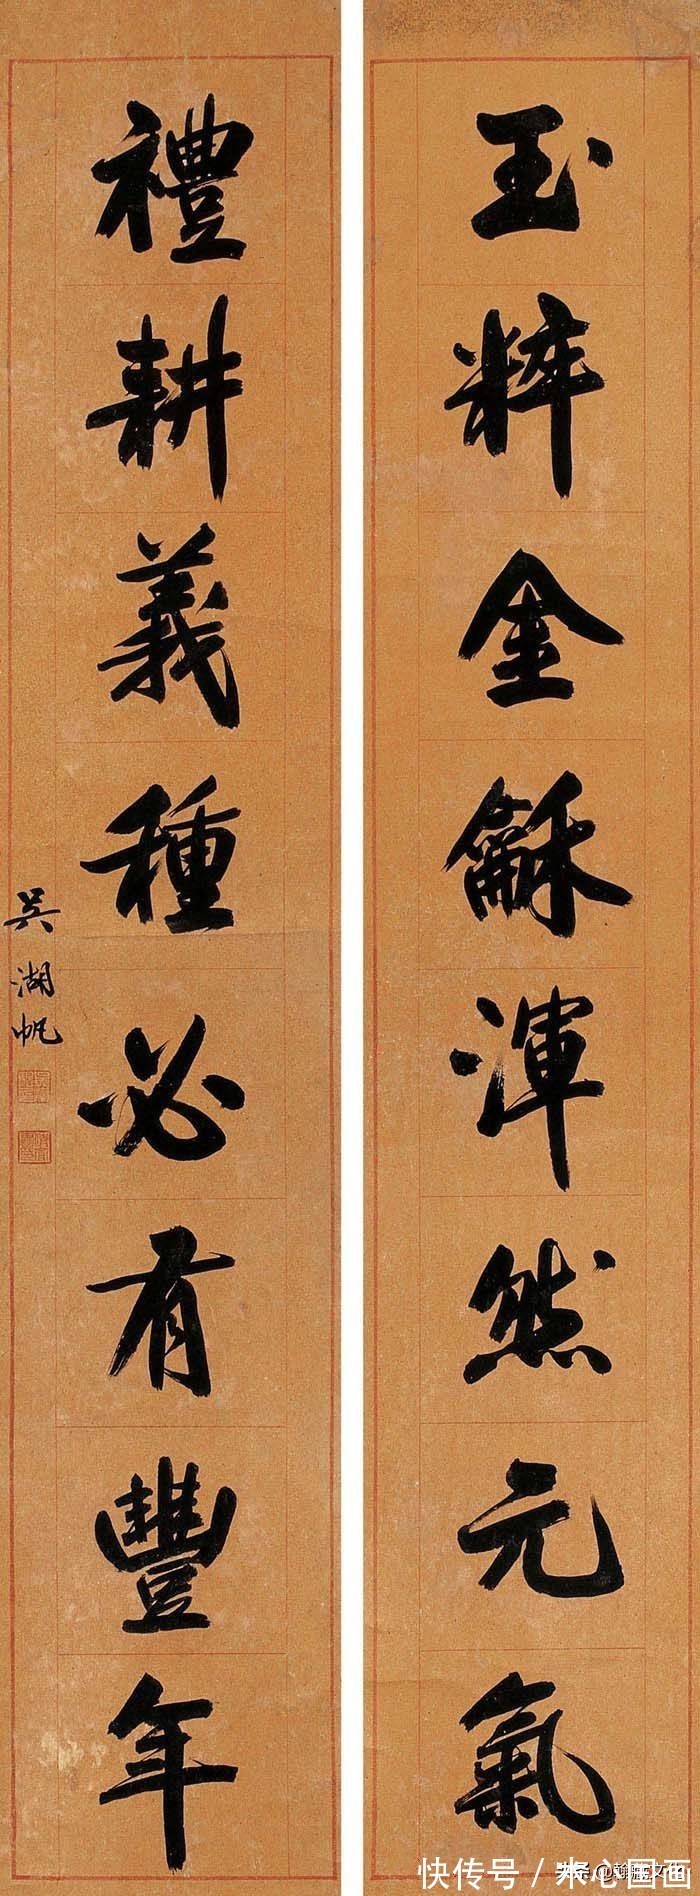 玉粹金龢渾然元氣
禮耕義種必有豐年
吳湖帆
快传号／木心国画